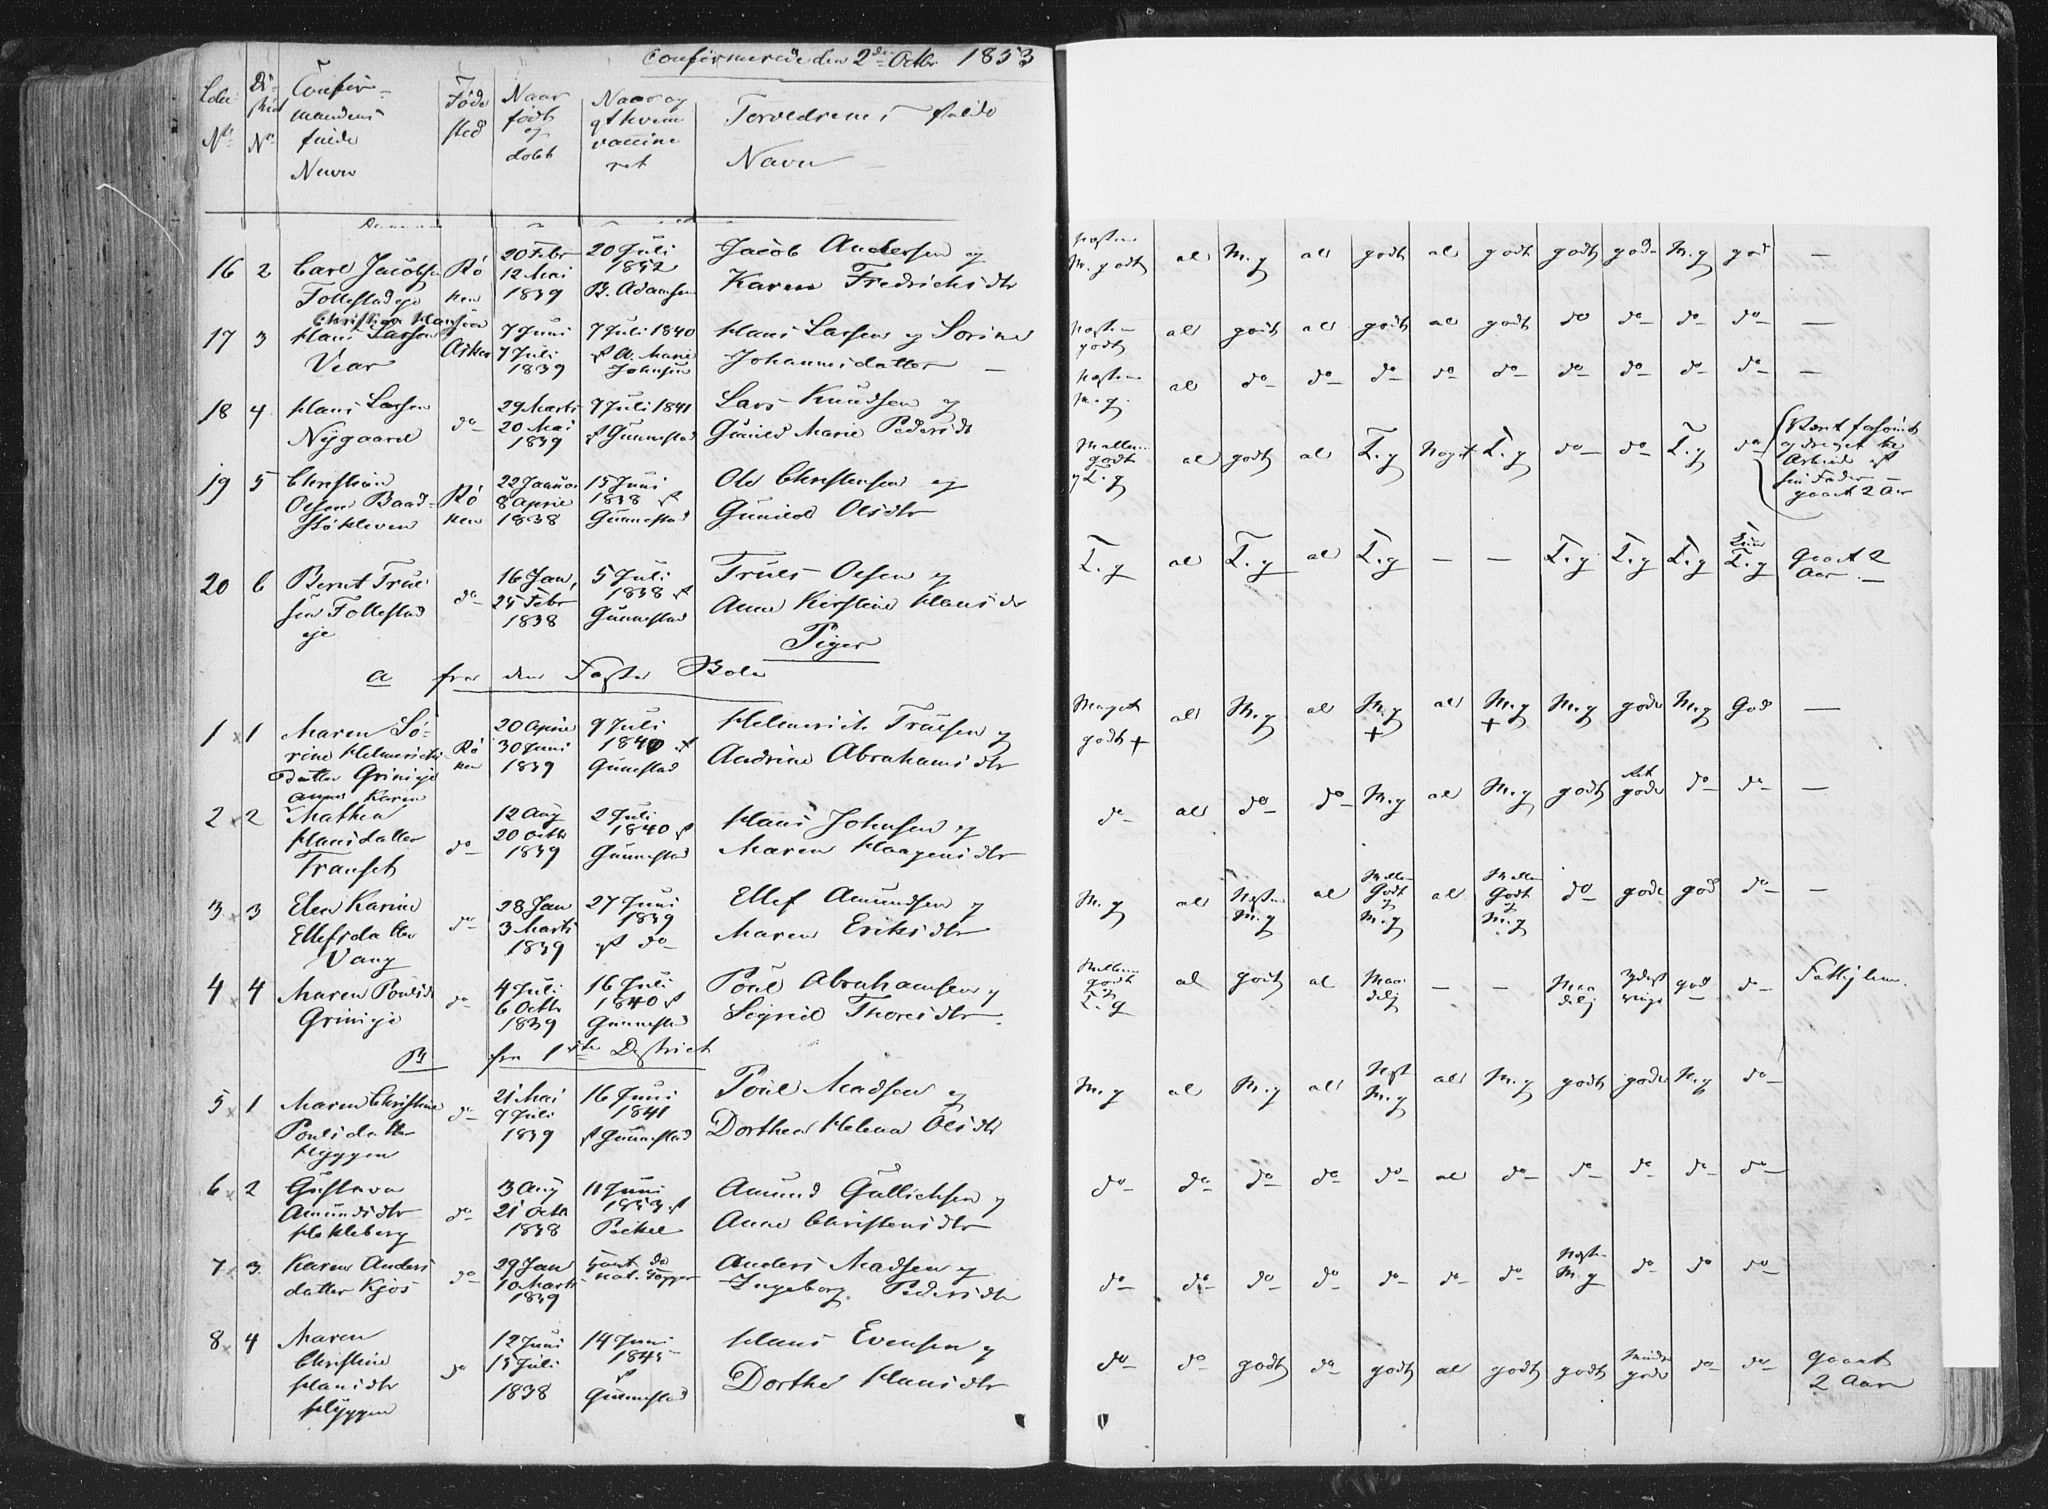 Confirmerede den 2den Octbr 1853
Lobe No
Di-strict No
Confir-mandens fulde Navn
Føde sted
Naar født og døbt
Naar og af hvem vaccineret
Forældrenes fulde Navn
16 2 Carl Jacobsen Røken 20 Febr 20 Juli Jacob Andersen og
Follestadeje 12 Mai 1839 1852 B. Adamsen Karen Fredriksdtr
Næsten M. godt al M. g al godt al godt godt gode M. g god —
17 3 Christian Hansen
Hans Larsen Asker 7 Juni 7 Juli 1840 Hans Larsen og Sørine
Vear 7 Juli 1839 af A. Marie Johnsen Johannesdatter —
Næsten godt al godt al godt al godt do do do do —
18 4 Hans Larsen do 29 Marts 7 Juli 1841 Lars Knudsen og
Nygaard 20 Mai 1839 af Gunnestad Gunild Marie Pedersdtr
Næsten M. g. al do do do do do do do do do —
19 5 Christian Røken 22 Januar 15 Juni Ole Christensen og
Olsen Baad- 8 April 1838 af
støkleven 1838 Gunnestad Gunild Olsdtr
Mallem godt og T. g al godt al T. g Noget T. g do do T. g do
Været forsømt og drevet til Arbeide af sin Fader — gaaet 2 Aar
20 6 Bernt Trul- do 16 Jan, 5 Juli Truls Olsen og
sen Follestad 25 Febr 1838 af Anne Kirstine Hansdtr
eje 1838 Gunnestad
T. g al T. g al T. g — — T. g T. g T. g T. g Gaaet 2 Aar. —
Piger
a fra den Faste Skole
1 1 Maren Sø- Røken 20 April 9 Juli Helmerich Trulsen og
rine Helmerichs 30 Juni 1840 af
Datter Grinieje 1839 Gunnestad Andrine Abrahamsdtr
Meget godt + al M. g al M. g + al M. g + M. g gode M. g God —
Anne Karen
2 2 Mathea do 12 Aug 2 Juli Hans Johnsen og
Hansdatter 20 Octb 1840 af
Transet 1839 Gunnestad Maren Haagensdtr
do al do do M. g al M. g godt Ret gode do do —
3 3 Elen Karine do 28 Jan 27 Juni Ellef Amundsen og
Ellefsdatter 3 Marts 1839
Vang 1839 af do Maren Eriksdtr
M. g al Næsten M. g al Mellem Godt og M. g al Mellem Godt og M. g do gode god do —
4 4 Maren Poulsdr do 4 Juli 16 Juli Poul Abrahamsen og
Grinieje 6 Octb 1840 af
1839 Gunnestad Sigrid Thoresdtr.
Mellem godt og T. g al godt al Maadelig — — Maadelig god do Fattiglem.
B fra 1ste District
5 1 Maren Christine do 21 Mai 16 Juni Poul Madsen og
Poulsdatter 9 Juli 1841
Hyggen 1839 af Gunnestad Dorthea Helena Olsdtr
M. g al M. g al Næst M. g al M. g godt gode M. g do
6 2 Gustava do 3 Aug 11 Juni Amund Gullichsen og
Amundsdtr 21 Octb 1853 af
Hakleberg 1838 Peckel Anne Christensdtr
do do do do do al do do do do do
7 3 Karen Anders do 29 Jan havt de Anders Madsen og
datter Kjos 10 Marts nat. Kopper
1839 Ingeborg Pedersdtr
do do do do do do do Næsten M. g do do do
8 4 Maren do 12 Juni 14 Juni Hans Evensen og
Christine 15 Juli 1845
Hansdtr af
Hyggen 1838 Gunnestad Dorthe Hansdtr
do do godt do godt al godt godt Mindre gode do do Gaaet 2 Aar